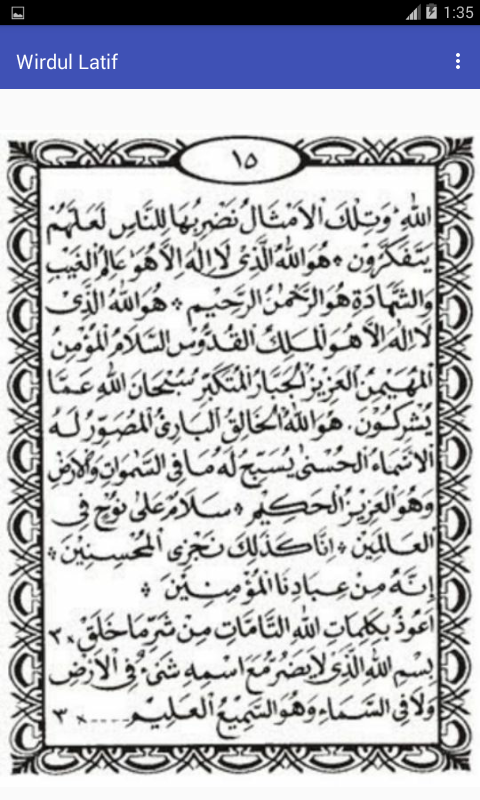 1:35
Wirdul Latif
١٥
اللهِ وَتِلْكَ الْاَمْثَالُ نَضْرِبُهَا لِلنَّاسِ لَعَلَّهُمْ
يَتَفَكَّرُوْنَ * هُوَ اللهُ الَّذِيْ لَا اِلٰهَ اِلَّا هُوَ عَالِمُ الْغَيْبِ
وَالشَّهَادَةِ هُوَ الرَّحْمٰنُ الرَّحِيْمُ * هُوَ اللهُ الَّذِيْ
لَا اِلٰهَ اِلَّا هُوَ الْمَلِكُ الْقُدُّوْسُ السَّلَامُ الْمُؤْمِنُ
الْمُهَيْمِنُ الْعَزِيْزُ الْجَبَّارُ الْمُتَكَبِّرُ سُبْحَانَ اللهِ عَمَّا
يُشْرِكُوْنَ . هُوَ اللهُ الْخَالِقُ الْبَارِئُ الْمُصَوِّرُ لَهُ
الْاَسْمَاءُ الْحُسْنٰى يُسَبِّحُ لَهُ مَا فِي السَّمٰوَاتِ وَالْاَرْضِ
وَهُوَ الْعَزِيْزُ الْحَكِيْمُ * سَلَامٌ عَلٰى نُوْحٍ فِى
الْعَالَمِيْنَ * اِنَّا كَذٰلِكَ نَجْزِى الْمُحْسِنِيْنَ *
اِنَّهُ مِنْ عِبَادِنَا الْمُؤْمِنِيْنَ *
اَعُوْذُ بِكَلِمَاتِ اللهِ التَّامَّاتِ مِنْ شَرِّ مَا خَلَقَ × ٣
بِسْمِ اللهِ الَّذِيْ لَا يَضُرُّ مَعَ اسْمِهِ شَيْءٌ فِى الْاَرْضِ
وَلَا فِى السَّمَاءِ وَهُوَ السَّمِيْعُ الْعَلِيْمُ ---- × ٣